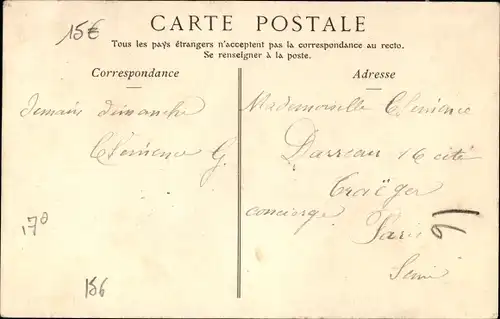 15€
CARTE POSTALE
Tous les pays étrangers n'acceptent pas la correspondance au recto.
Se renseigner à la poste.
Correspondance
Adresse
Demain dimanche
Clémence G.
Mademoiselle Clémence
Darreau 16 cité
Traëger
concierge
Paris
Seine
170
156